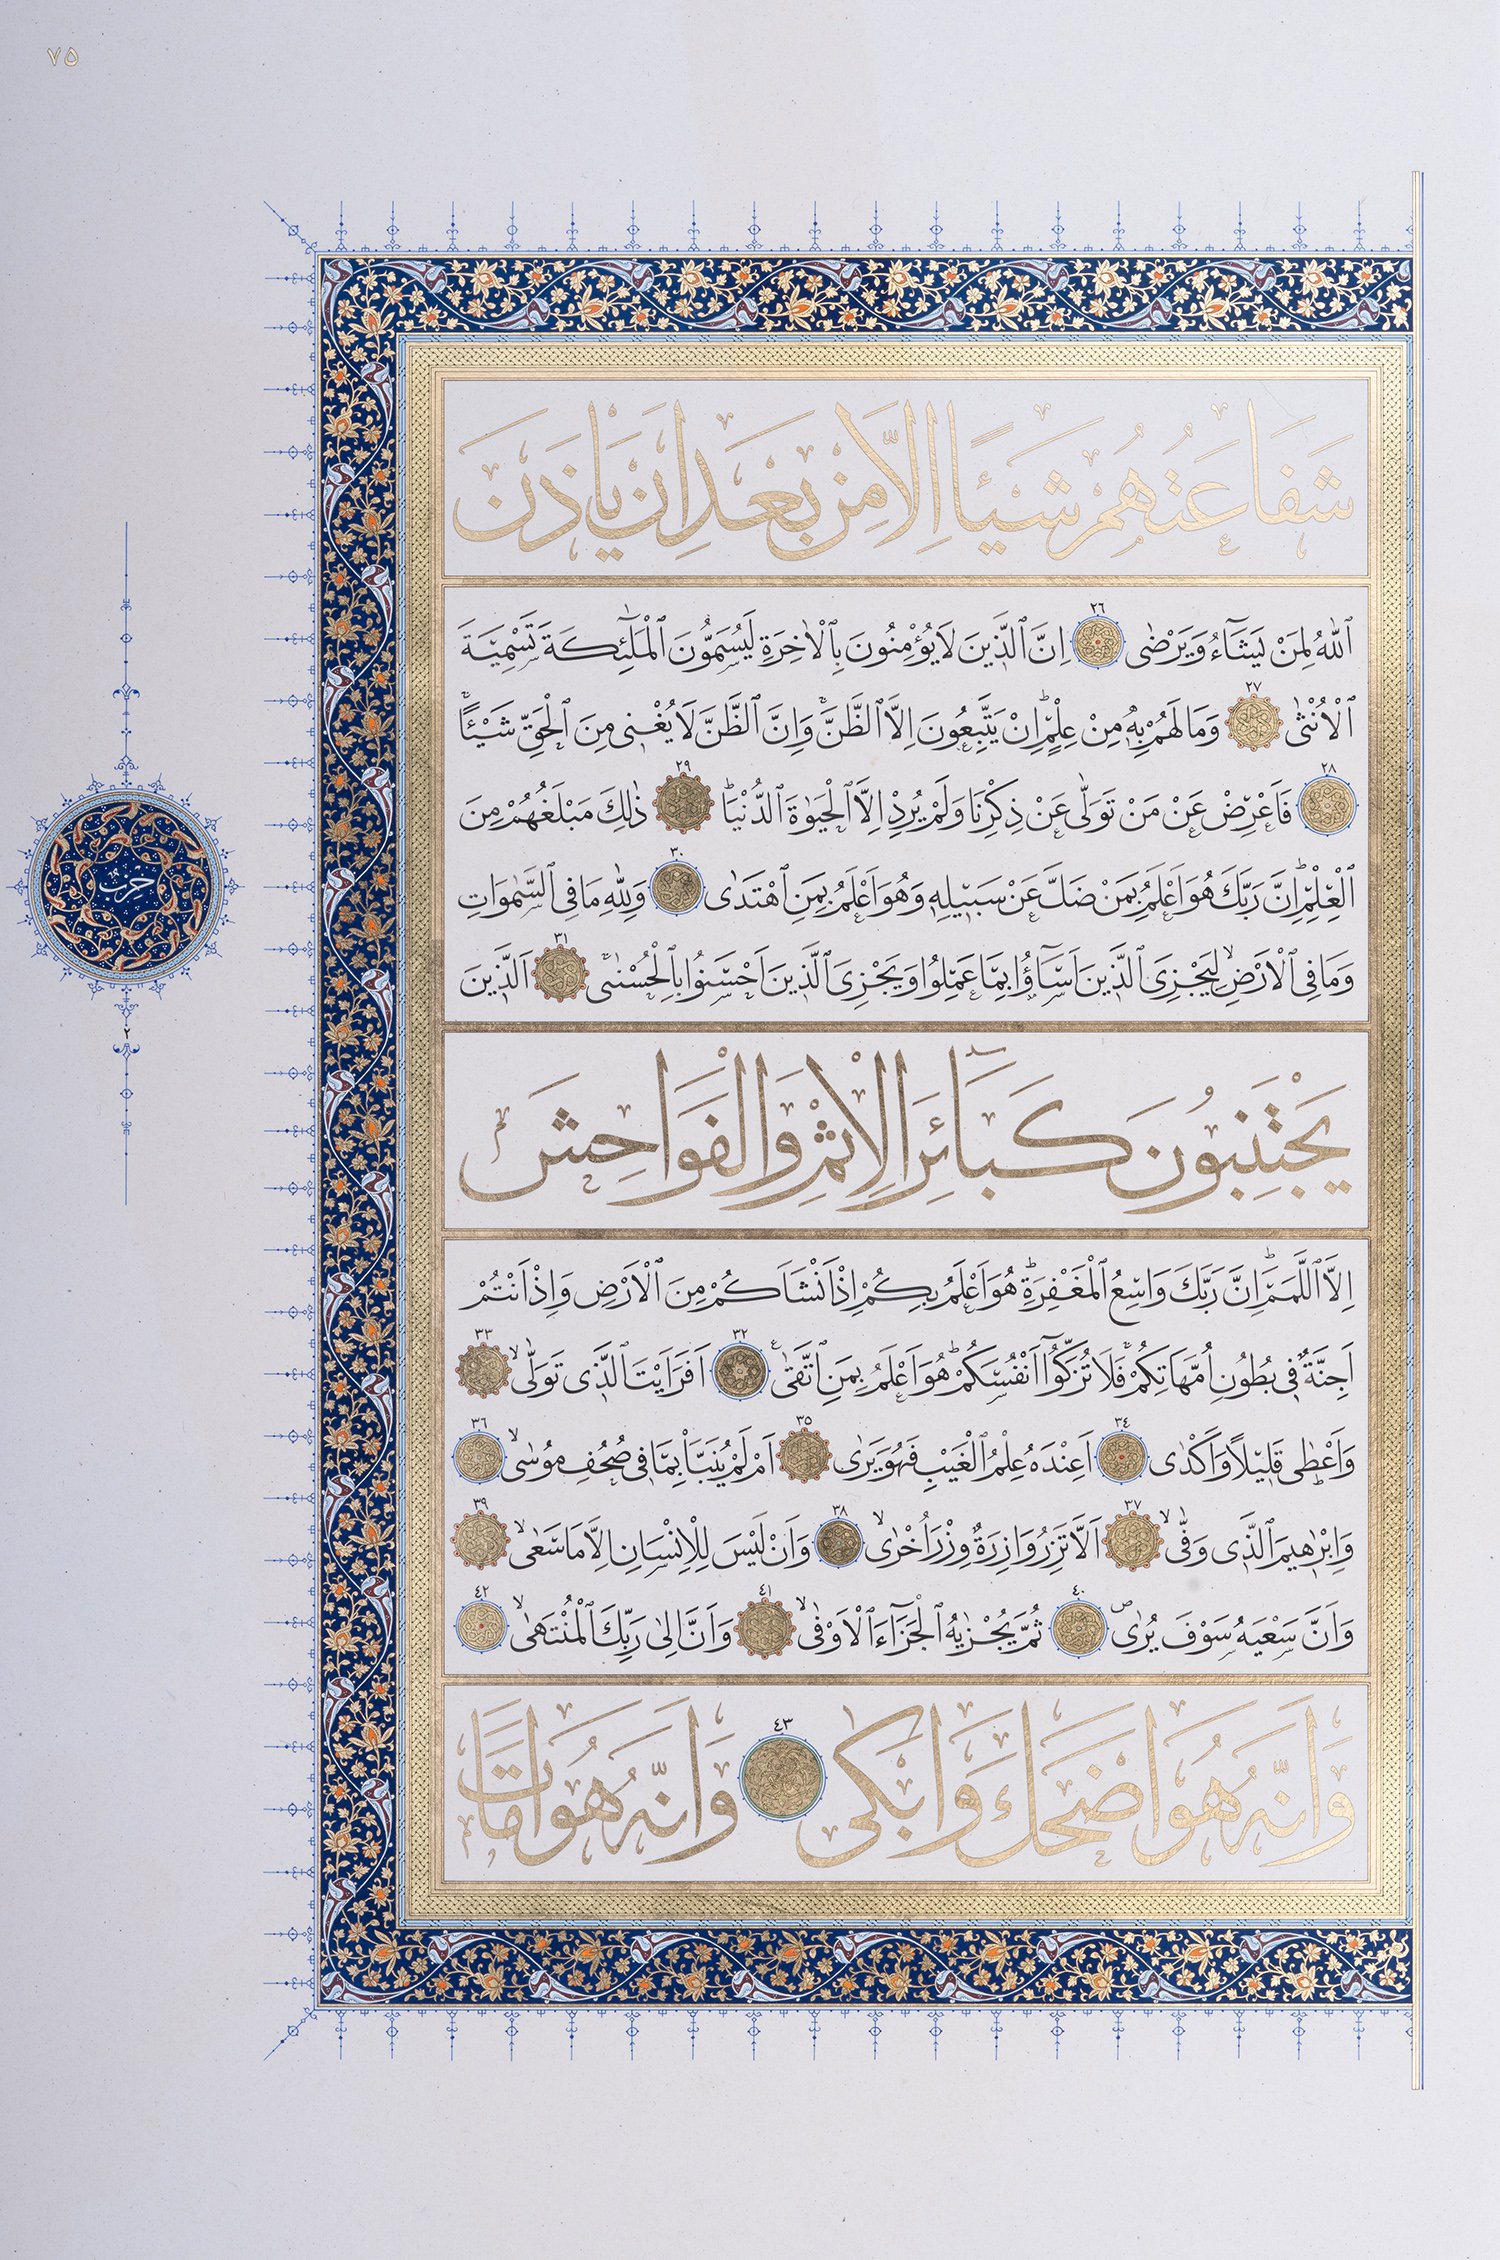 ٧٥
شَفَاعَتُهُمْ شَيْـًٔا اِلَّا مِنْ بَعْدِ اَنْ يَأْذَنَ
ٱللّٰهُ لِمَنْ يَشَآءُ وَيَرْضٰى ٢٦ اِنَّ ٱلَّذِينَ لَا يُؤْمِنُونَ بِٱلْاٰخِرَةِ لَيُسَمُّونَ ٱلْمَلٰٓئِكَةَ تَسْمِيَةَ
ٱلْاُنْثٰى ٢٧ وَمَا لَهُمْ بِهٖ مِنْ عِلْمٍ ۖ اِنْ يَتَّبِعُونَ اِلَّا ٱلظَّنَّ ۚ وَاِنَّ ٱلظَّنَّ لَا يُغْنِى مِنَ ٱلْحَقِّ شَيْئًا ۚ
٢٨ فَاَعْرِضْ عَنْ مَنْ تَوَلّٰى عَنْ ذِكْرِنَا وَلَمْ يُرِدْ اِلَّا ٱلْحَيٰوةَ ٱلدُّنْيَا ۗ ٢٩ ذٰلِكَ مَبْلَغُهُمْ مِنَ
ٱلْعِلْمِ ۗ اِنَّ رَبَّكَ هُوَ اَعْلَمُ بِمَنْ ضَلَّ عَنْ سَبِيلِهٖ وَهُوَ اَعْلَمُ بِمَنِ ٱهْتَدٰى ٣٠ وَلِلّٰهِ مَا فِى ٱلسَّمٰوَاتِ
وَمَا فِى ٱلْاَرْضِ ۙ لِيَجْزِىَ ٱلَّذِينَ اَسَآؤُا بِمَا عَمِلُوا وَيَجْزِىَ ٱلَّذِينَ اَحْسَنُوا بِٱلْحُسْنٰى ۚ ٣١ اَلَّذِينَ
يَجْتَنِبُونَ كَبَآئِرَ الْاِثْمِ وَالْفَوَاحِشَ
اِلَّا ٱللَّمَمَ ۗ اِنَّ رَبَّكَ وَاسِعُ ٱلْمَغْفِرَةِ ۗ هُوَ اَعْلَمُ بِكُمْ اِذْ اَنْشَاَكُمْ مِنَ ٱلْاَرْضِ وَاِذْ اَنْتُمْ
اَجِنَّةٌ فِى بُطُونِ اُمَّهَاتِكُمْ ۚ فَلَا تُزَكُّٓوا اَنْفُسَكُمْ ۗ هُوَ اَعْلَمُ بِمَنِ ٱتَّقٰى ۚ ٣٢ اَفَرَاَيْتَ ٱلَّذِى تَوَلّٰى ۙ ٣٣
وَاَعْطٰى قَلِيلًا وَاَكْدٰى ٣٤ اَعِنْدَهُ عِلْمُ ٱلْغَيْبِ فَهُوَ يَرٰى ٣٥ اَمْ لَمْ يُنَبَّأْ بِمَا فِى صُحُفِ مُوسٰى ۙ ٣٦
وَاِبْرٰهِيمَ ٱلَّذِى وَفّٰى ۙ ٣٧ اَلَّا تَزِرُ وَازِرَةٌ وِزْرَ اُخْرٰى ۙ ٣٨ وَاَنْ لَيْسَ لِلْاِنْسَانِ اِلَّا مَا سَعٰى ۙ ٣٩
وَاَنَّ سَعْيَهُ سَوْفَ يُرٰى ص ٤٠ ثُمَّ يُجْزٰيهُ ٱلْجَزَآءَ ٱلْاَوْفٰى ۙ ٤١ وَاَنَّ اِلٰى رَبِّكَ ٱلْمُنْتَهٰى ۙ ٤٢
وَاَنَّهُ هُوَ اَضْحَكَ وَاَبْكٰى ٤٣ وَاَنَّهُ هُوَ اَمَاتَ
حزب
٢